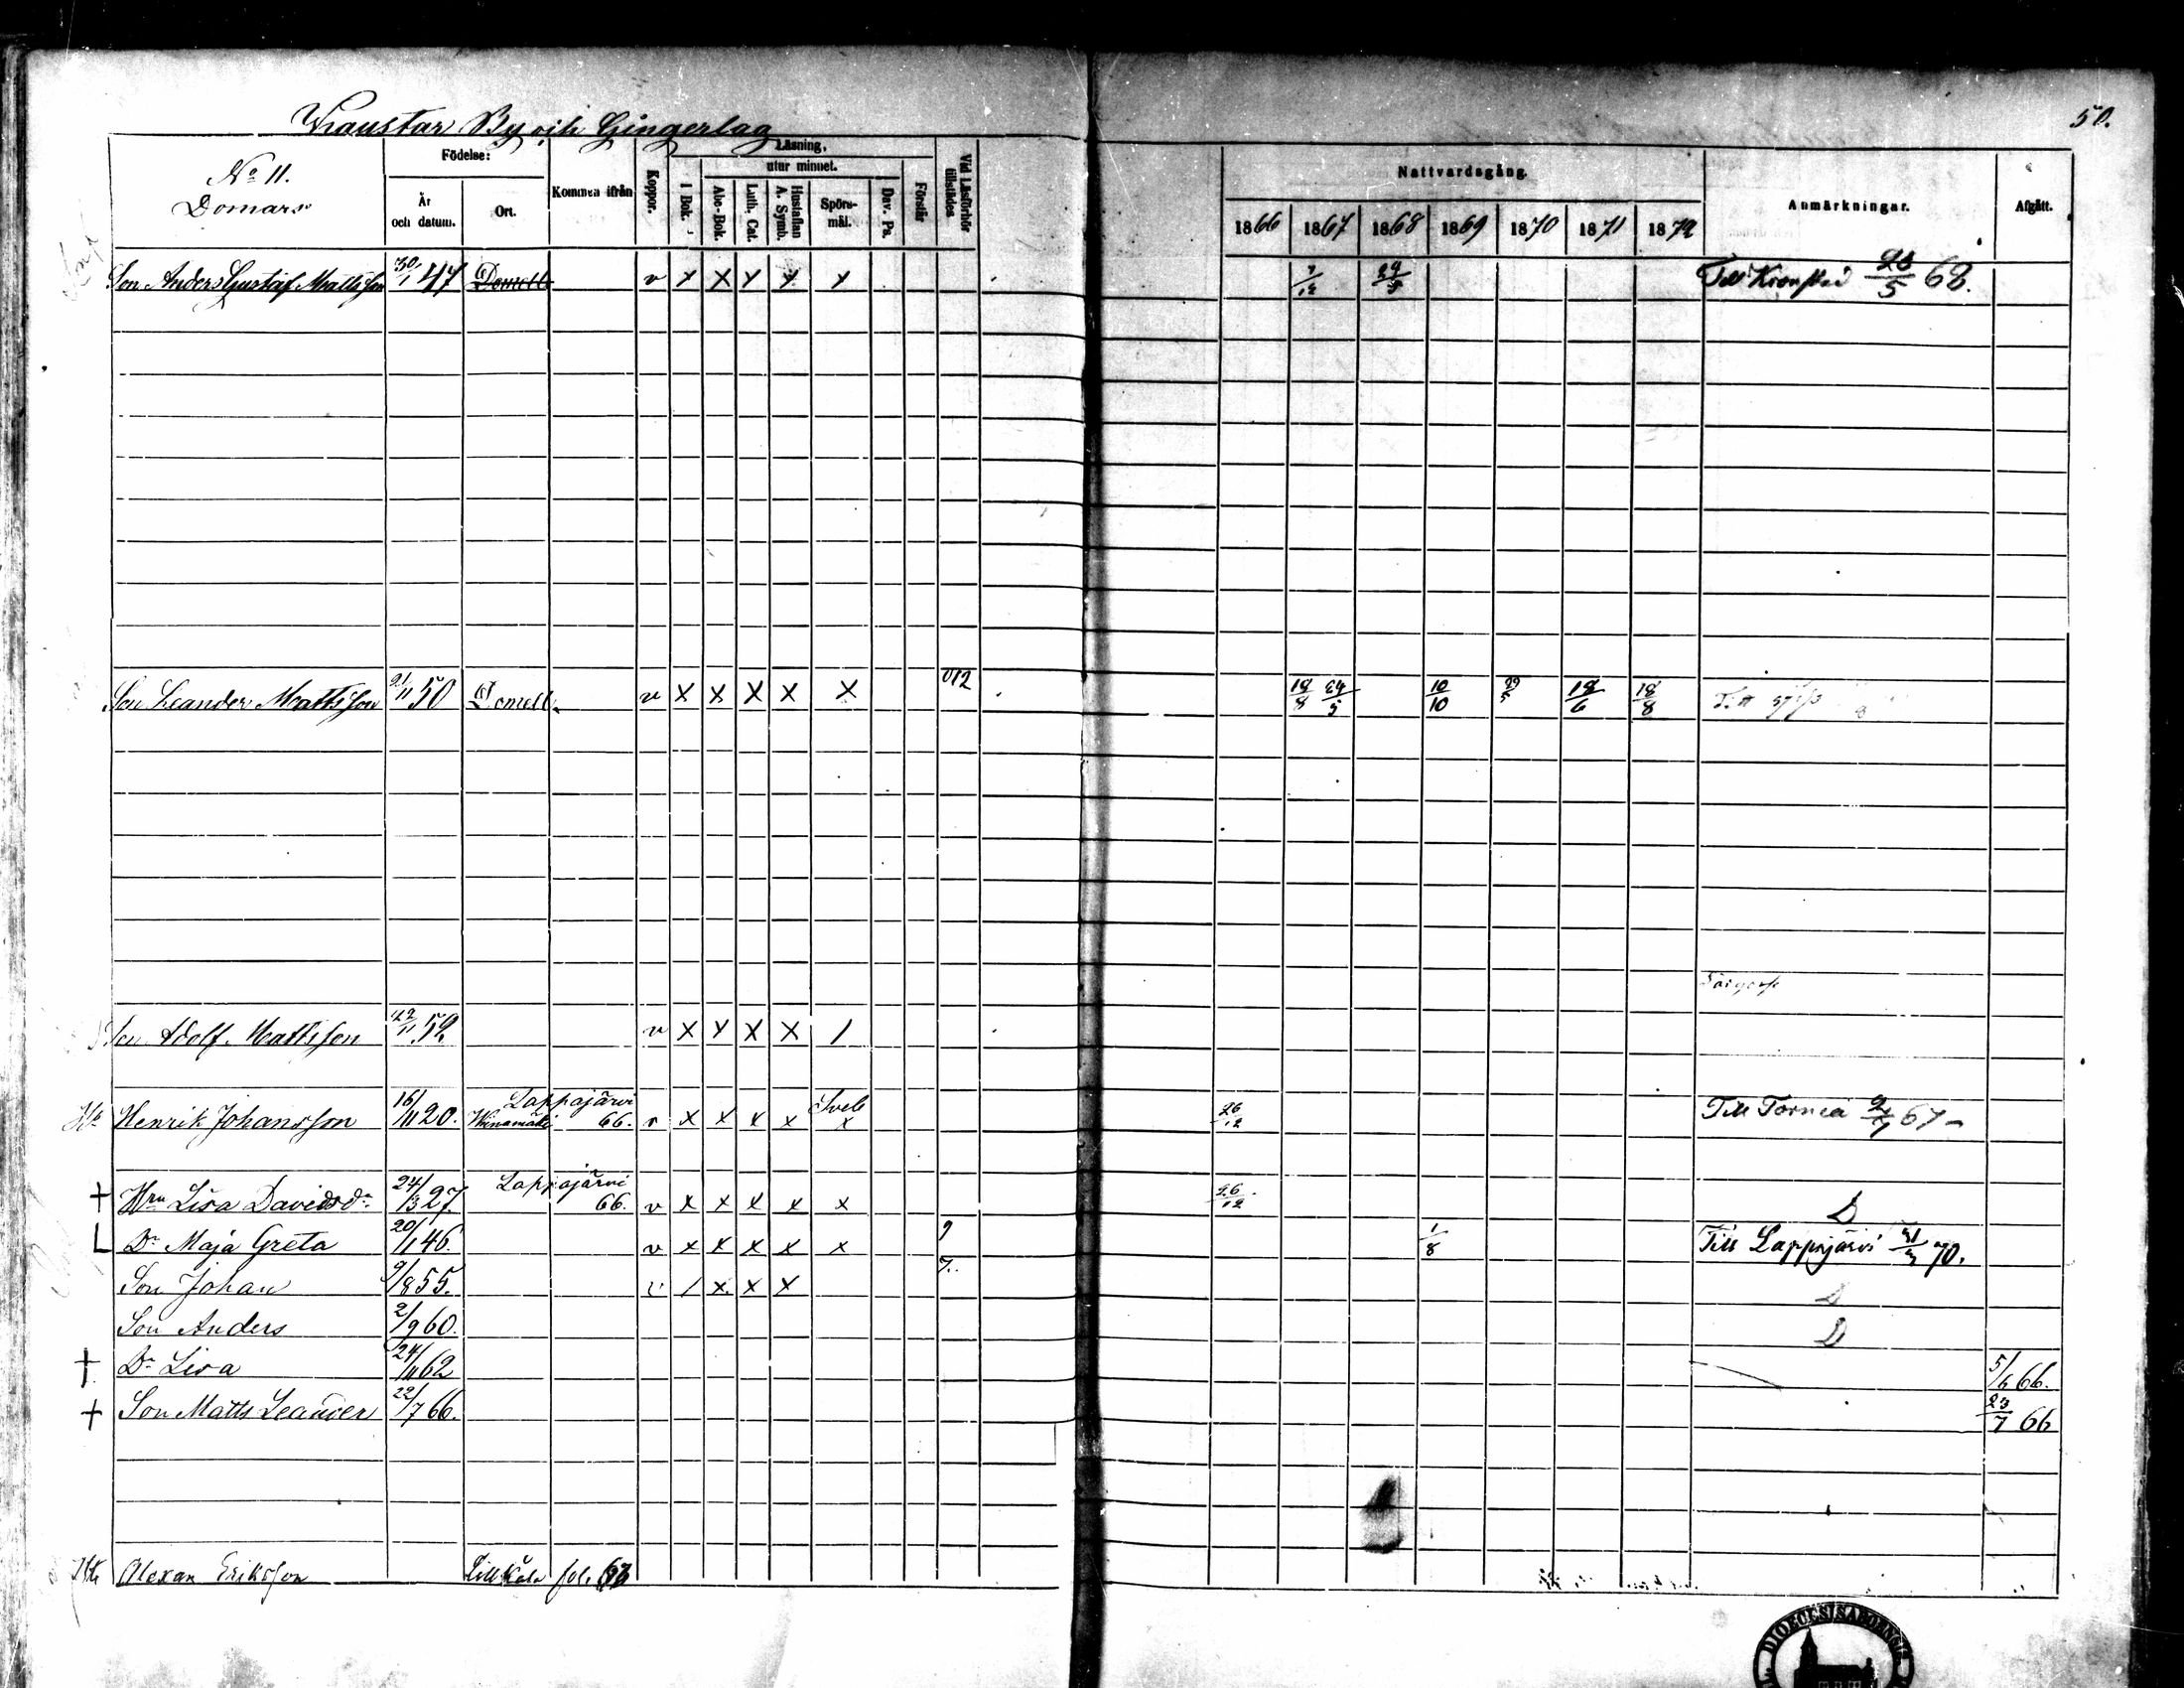 By och Gingerlag
50.
No 11.
Domars
Födelse:
År och datum.
Ort.
Kommen ifrån
Koppor.
Läsning,
I Bok.
utur minnet.
Abc-Bok.
Luth. Cat.
Hustaflan A. Symb.
Spörsmål.
Dav. Ps.
Förstår
Vid Läsförhör tillstädes
Nattvardsgång.
1866 1867 1868 1869 1870 1871 1872
Anmärkningar.
Afgått.
Son Anders Gustaf Mattsson 30/1 47 v x x x x x 29/5 Till Kronstad 23/5 68.
Son Leander Mattsson 21/11 50 v x x x x x 18/8 24/5 10/10 18/6 18/8
Son Adolf Mattsson v x x x x /
Henrik Johansson 16/11 20. Lappajärvi 66. v x x x x x 26/12 Till Torneå 67
+ Lisa Davidsdr 27. Lappajärvi 66. v x x x x x 26/12 D
L Dr Maja Greta 20/1 46. v x x x x x 9 1/8 Till Lappajärvi 70.
Son Johan 9/8 55. v / x x x 7. D
Son Anders 2/9 60. D
+ Dr Lisa 24/11 62 5/6 66.
+ Son Matts Leander 22/7 66. 23/7 66
Alexan Eriksson fol. 
DIOECESIS ABOENSIS